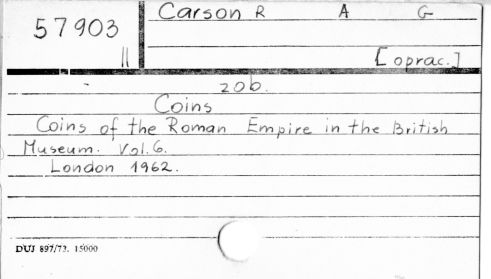 Carson R A G
57903
II
[oprac.]
zob.
Coins
Coins of the Roman Empire in the British
Museum. Vol. 6.
London 1962.
DUJ 897/73. 15000